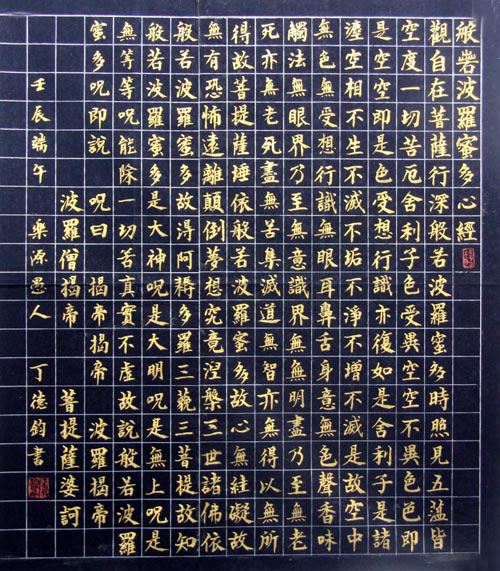 般若波羅蜜多心經
觀自在菩薩行深般若波羅蜜多時照見五蘊皆
空度一切苦厄舍利子色受異空空不異色色即
是空空即是色受想行識亦復如是舍利子是諸
灋空相不生不滅不垢不淨不增不滅是故空中
無色無受想行識無眼耳鼻舌身意無色聲香味
觸法無眼界乃至無意識界無無明盡乃至無老
死亦無老死盡無苦集滅道無智亦無得以無所
得故菩提薩埵依般若波羅蜜多故心無罣礙故
無有恐怖遠離顛倒夢想究竟涅槃三世諸佛依
般若波羅蜜多故得阿耨多羅三藐三菩提故知
般若波羅蜜多是大神呪是大明呪是無上呪是
無等等呪能除一切苦真實不虛故說般若波羅
蜜多呪即說 呪曰 揭帝揭帝 波羅揭帝
波羅僧揭帝 菩提薩婆訶
壬辰端午 樂源愚人 丁德鈞書